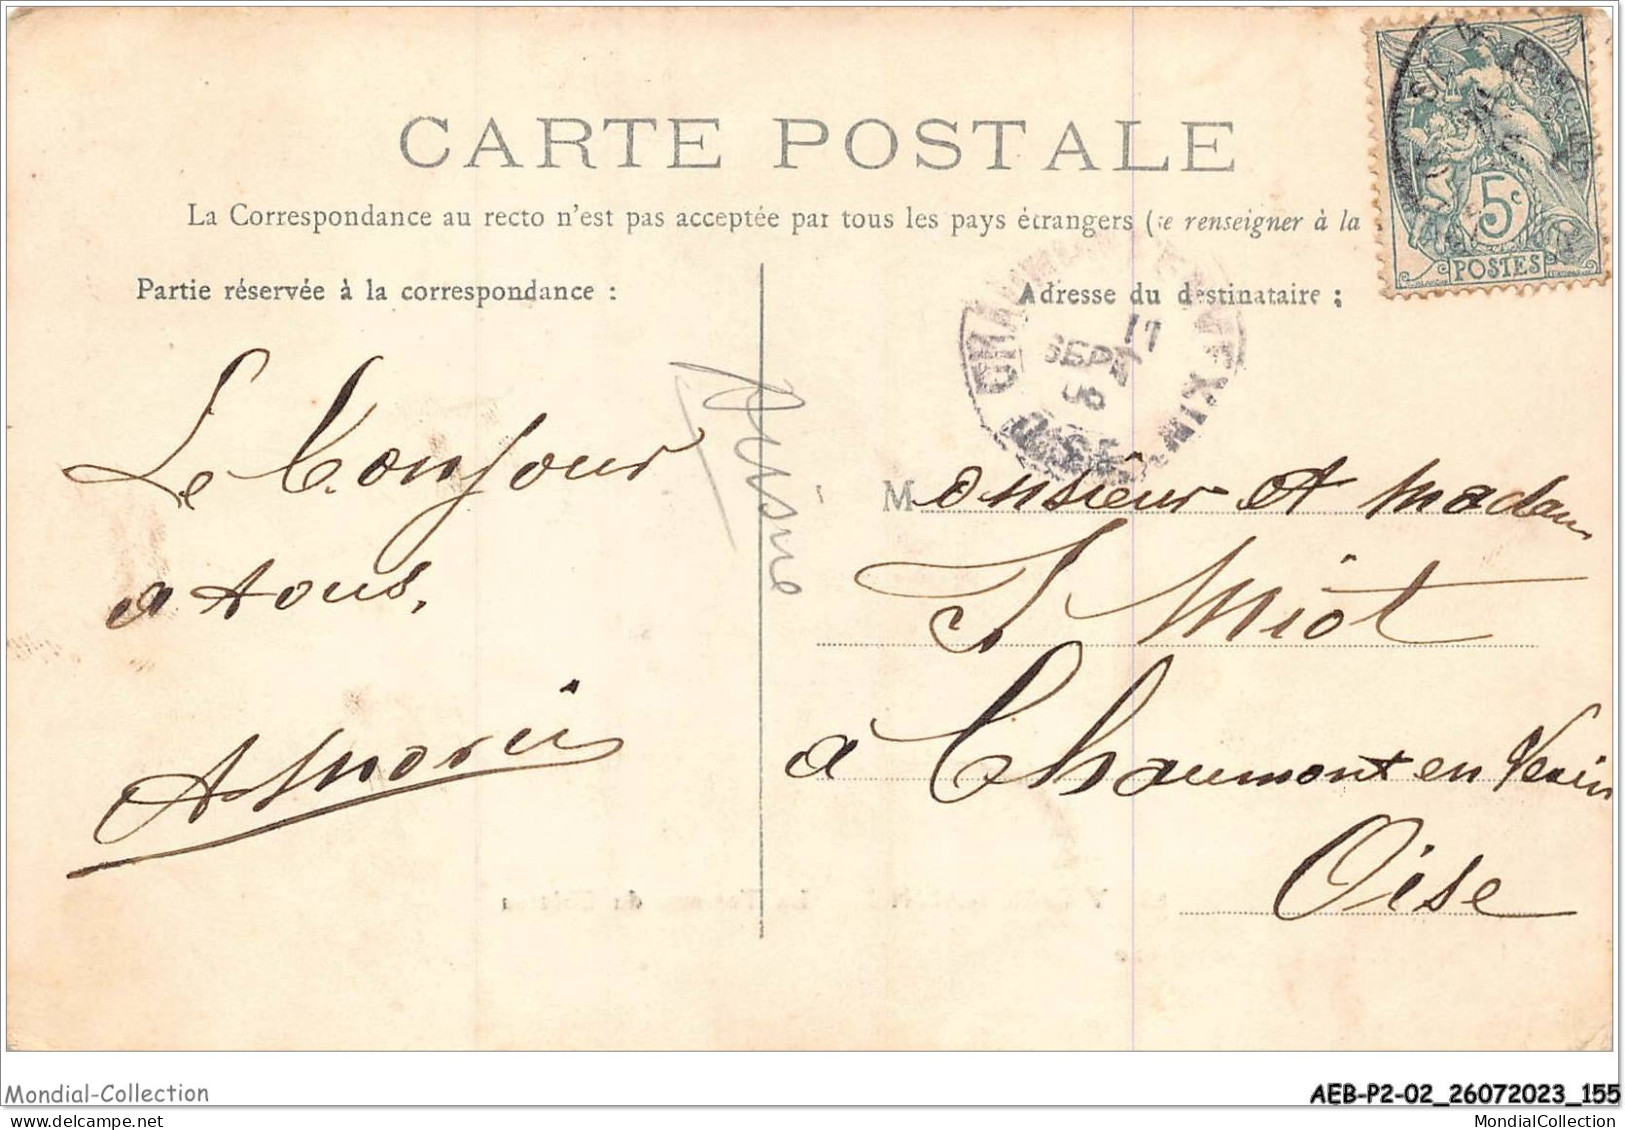 CARTE POSTALE
La Correspondance au recto n'est pas acceptée par tous les pays étrangers (se renseigner à la
Partie réservée à la correspondance :
Adresse du destinataire :
5c
POSTES
CHAUMONT EN VEXIN
11
SEPT
OISE
Le bonjour
a tous,
Aisne
Monsieur et Madam
J Miot
à Chaumont en Vexin
Oise
Mondial-Collection
AEB-P2-02_26072023_155
MondialCollection